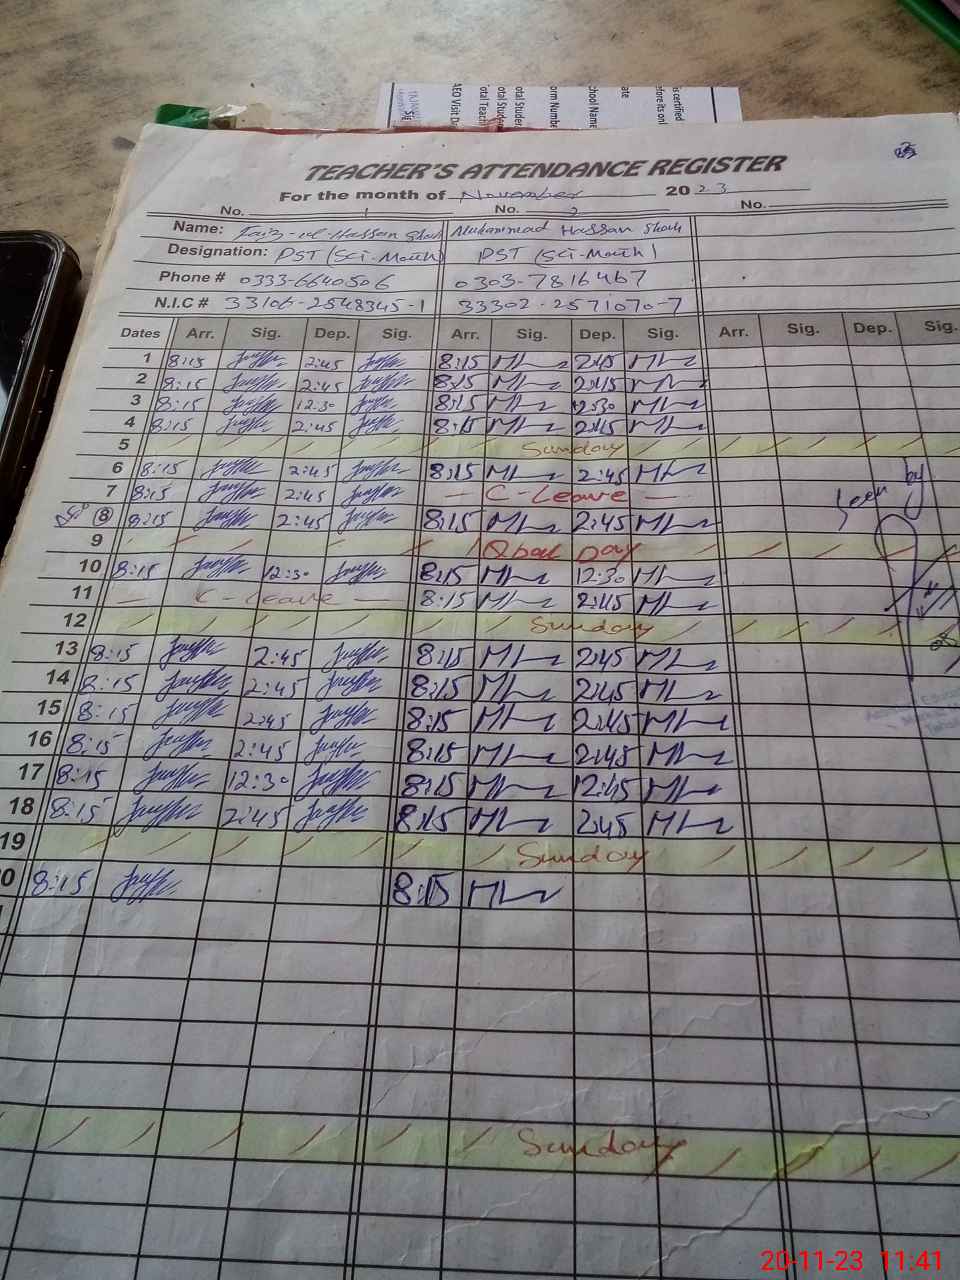 is certified
efore its onl
ate
chool Name
orm Numbe
otal Studen
otal Studer
otal Teach
AEO Visit Da
TEACHER'S ATTENDANCE REGISTER
For the month of November 2023
No. 1 No. 2 No.
Name: Faiz-ul-Hassan Shah Muhammad Hassan Shah
Designation: PST (Sci-Math) PST (Sci-Math)
Phone # 0333-6640506 0303-7816467
N.I.C # 33106-2548345-1 33302-2571070-7
Dates Arr. Sig. Dep. Sig. Arr. Sig. Dep. Sig. Arr. Sig. Dep. Sig.
1 8:15 2:45 8:15 2:45
2 8:15 2:45 8:15 2:45
3 8:15 12:30 8:15 12:30
4 8:15 2:45 8:15 2:45
5 Sunday
6 8:15 2:45 8:15 2:45
7 8:15 2:45 - C-Leave - Seen by
8 8:15 2:45 8:15 2:45
9 Iqbal Day
10 8:15 12:30 8:15 12:30
11 - C-Leave - 8:15 2:45
12 Sunday
13 8:15 2:45 8:15 2:45
14 8:15 2:45 8:15 2:45
15 8:15 2:45 8:15 2:45
16 8:15 2:45 8:15 2:45
17 8:15 12:30 8:15 12:45
18 8:15 2:45 8:15 2:45
19 Sunday
0 8:15 8:15
Sunday
20-11-23 11:41